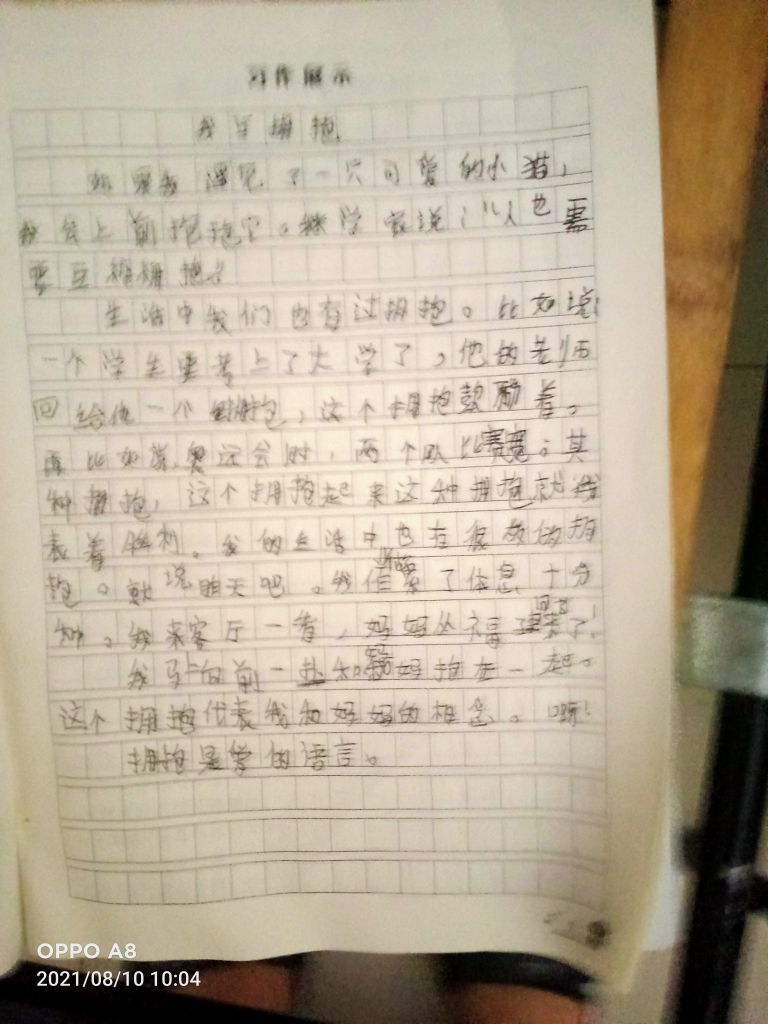 习作展示
我 拥抱
如果我遇见了一只可爱的小猫，
我会上前抱抱它。 学家说：“人也需
要互相拥抱。”
生活中我们也有过拥抱。比如说：
一个学生要考上了大学了，他的老师
回给他一个拥抱，这个拥抱鼓励着。
再比如 奥运会时，两个队比赛 。其
种拥抱，这个拥抱起来这种拥抱就代
表着胜利。我的生活中也在 拥
抱。就说昨天吧。我作 了休息十分
钟。我来客厅一看，妈妈从福建 了！
我马上向前一扑和妈妈抱在一起。
这个拥抱代表我和妈妈的相念。啊！
拥抱是 的语言。
OPPO A8
2021/08/10 10:04